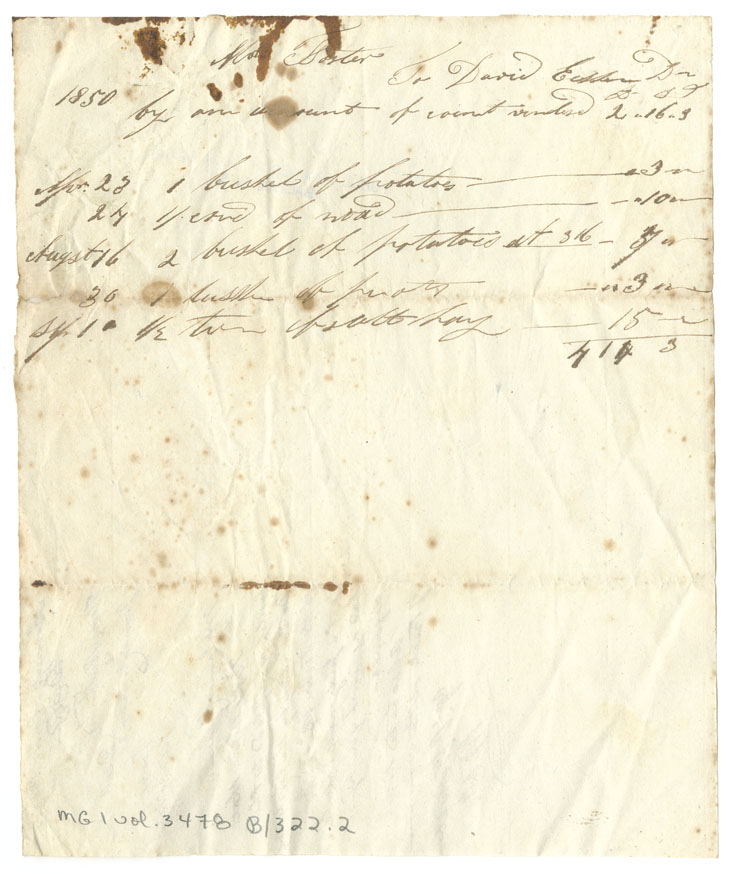 Mr Foster
To David Dr
£ S D
1850 by an amount of acount rendered 2 " 16 " 3
Apr. 23 1 bushel of potatoes " 3 "
27 1 cord of wood " 10 "
Augst 16 2 bushel of potatoes at 3/6 7 "
30 1 of " 3 "
Sep. 1. 1/2 ton of salt hay 15 "
4 14 3
MG 1 vol. 3478 B/322.2